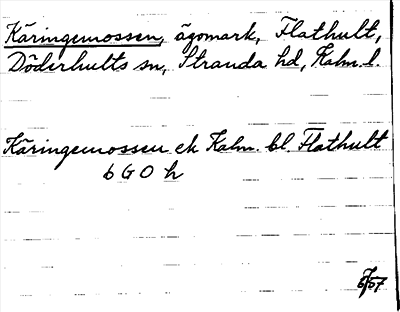 Käringemossen, ägomark, Flathult,
Döderhults sn, Stranda hd, Kalm. l.
Käringemossen ek Kalm. bl. Flathult
6 G 0 h